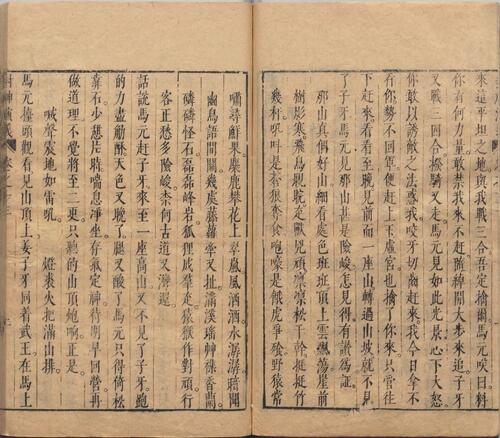 來這平坦之地與我戰三合吾定擒爾馬元笑曰料
你有何力量敢禁我來不趕隨綽開大步來追子牙
又戰三四合撥騎又走馬元見如此光景心下大怒
你敢以誘敵之法惑我咬牙切齒趕來我今日拿不
有你勢不回軍便趕上玉虛宮也擒了你來只管往
下趕來看看至晚見前面一座山轉過山坡就不見
了子牙馬元見那山甚是險峻怎見得有讚為証
那山真個好山細看處色班班頂上雲飄蕩崖前
樹影寒飛鳥睍睆兇獸頑凜凜松千幹挺挺竹
幾竿吼叫是蒼狼奪食咆嚎是餓虎爭飡野猿常
嘯尋鮮果麋鹿攀花上翠嵐風洒洒水潺潺暗聞
幽鳥語間關幾處藤蘿牽又扯滿溪瑤艸雜香蘭
磷磷怪石磊磊峰岩狐狸成羣走猿猴作對頑行
客正愁多險峻奈何古道又灣還
話說馬元趕子牙來至一座高山又不見了子牙跑
的力盡筋酥天色又晚了腿又酸了馬元只得倚松
靠石少憩片時喘息淨坐存氣定神待明早回營再
做道理不覺將至二更只聽的山頂砲响正是
喊聲震地如雷吼 燈毬火把滿山排
馬元擡頭觀看見山頂上姜子牙同着武王在馬上
封神演義 卷之十三